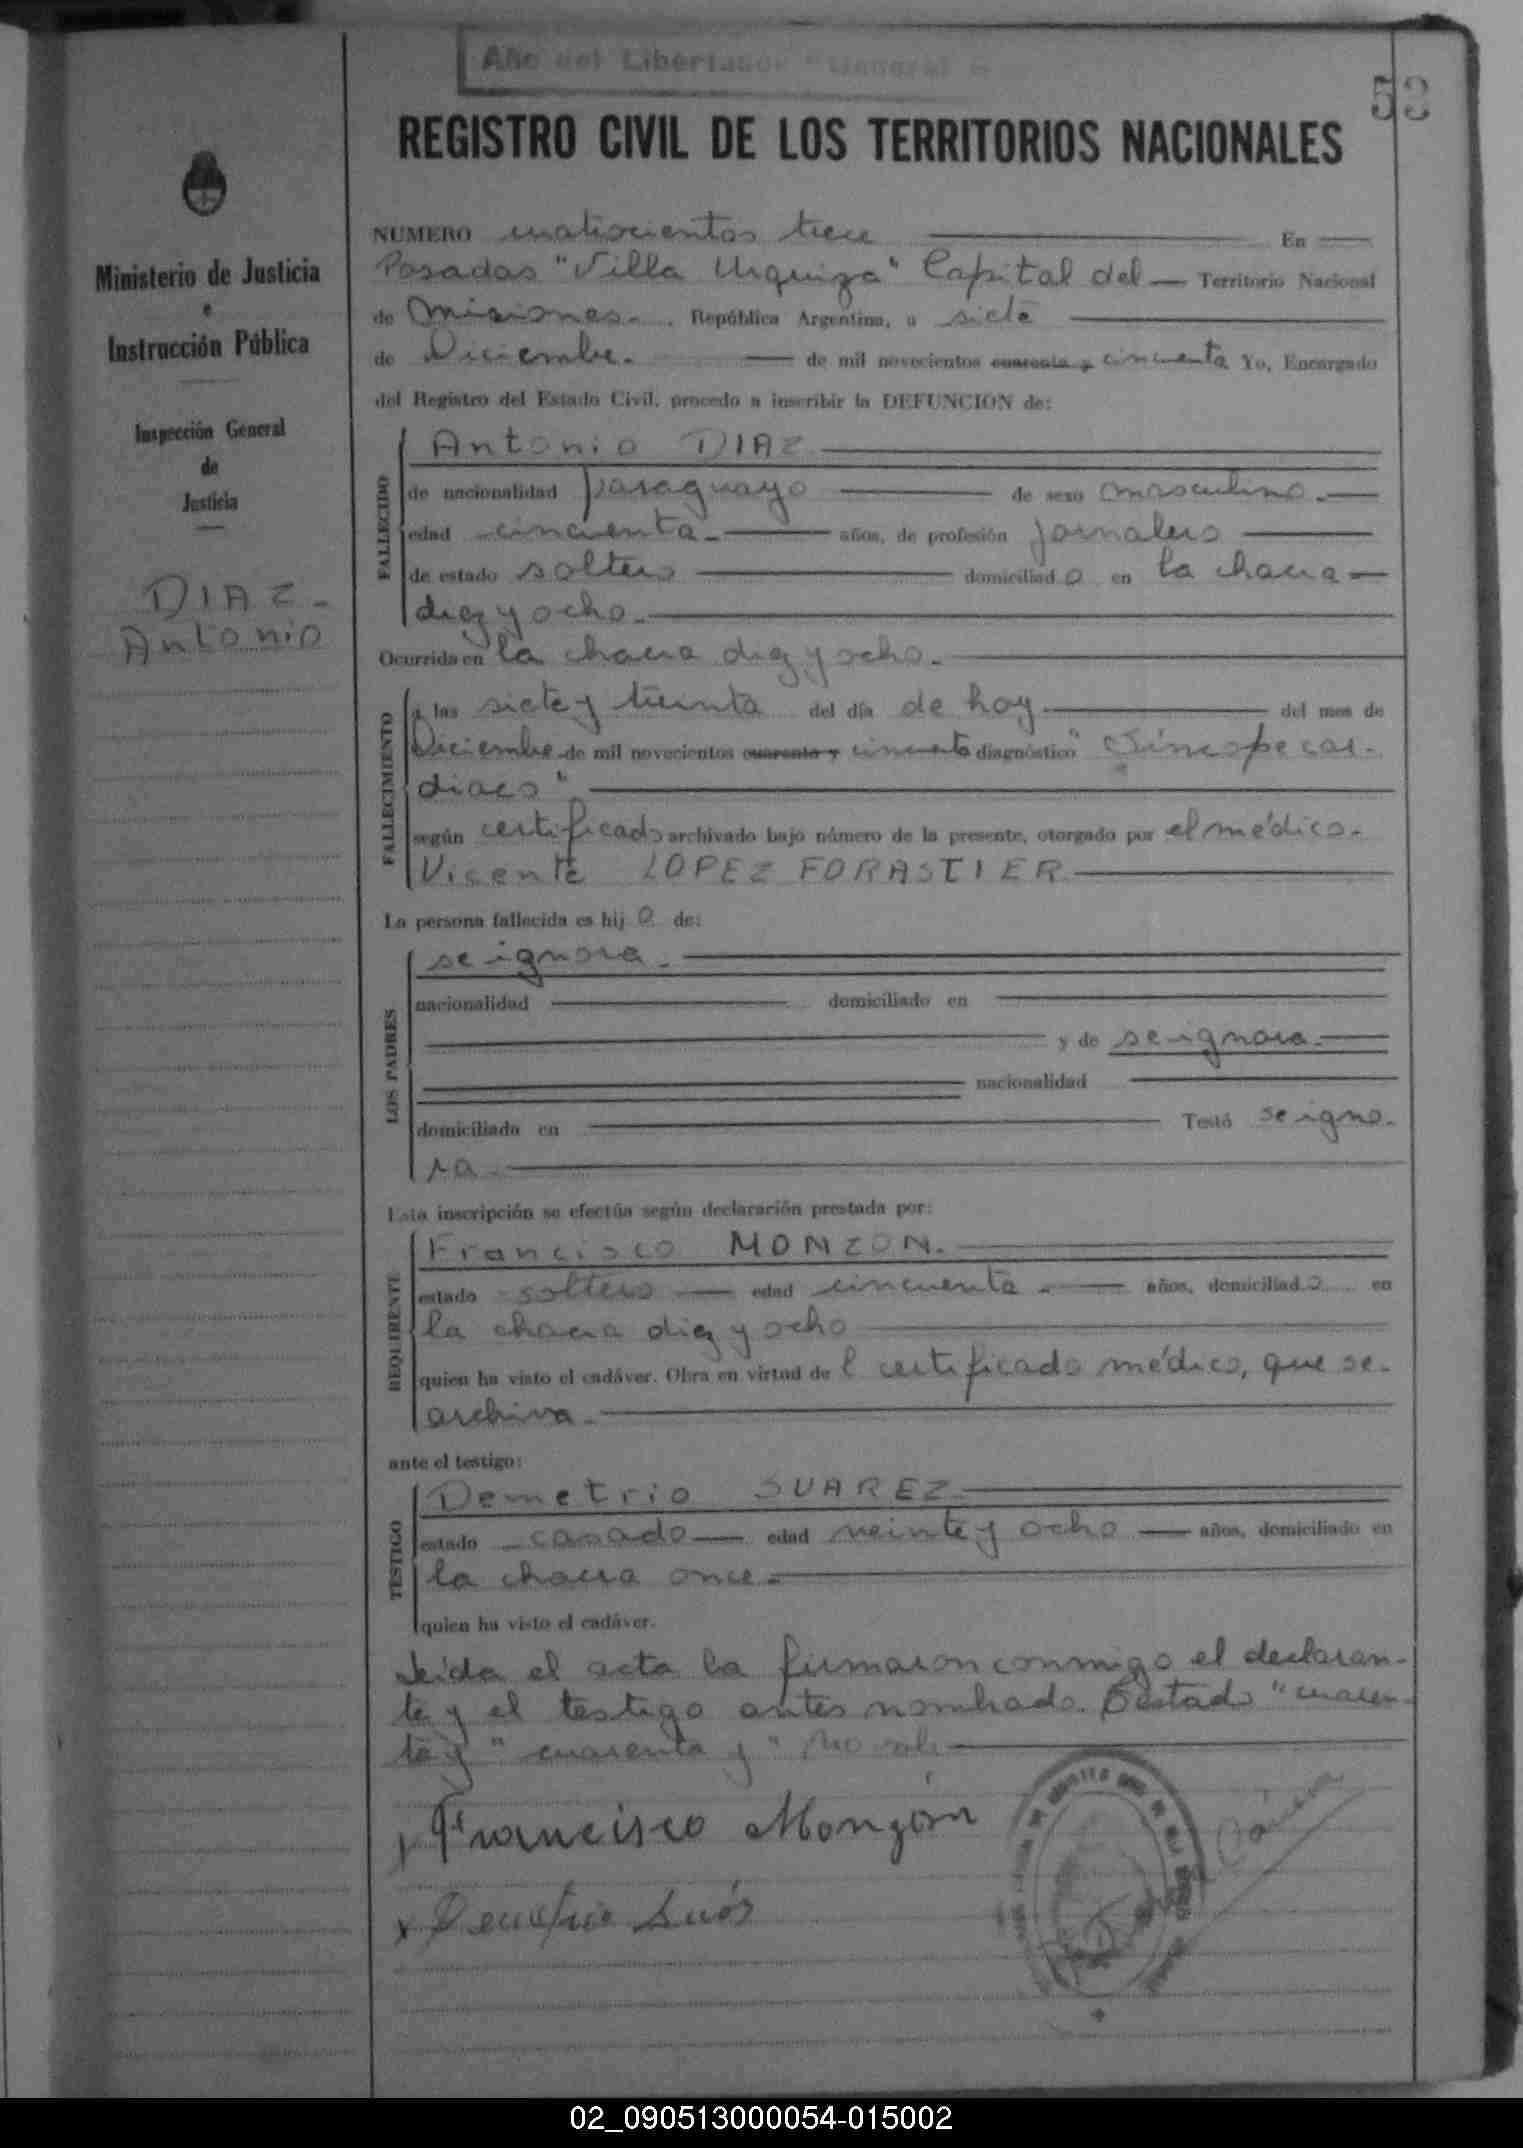 Año del Libertador "General S
53
REGISTRO CIVIL DE LOS TERRITORIOS NACIONALES
Ministerio de Justicia
e
Instrucción Pública
Inspección General
de
Justicia
DIAZ-
Antonio
NUMERO cuatrocientos trece En
Posadas "Villa Urquiza" Capital del Territorio Nacional
de Misiones. República Argentina, a siete
de Diciembre. de mil novecientos cuarenta y cincuenta Yo, Encargado
del Registro del Estado Civil, procedo a inscribir la DEFUNCION de:
FALLECIDO
Antonio DIAZ
de nacionalidad paraguayo de sexo masculino.
edad cincuenta. años, de profesión jornalero
de estado soltero domiciliado en la chacra
diez y ocho.
Ocurrida en la chacra diez y ocho.
FALLECIMIENTO
a las siete y treinta del día de hoy del mes de
Diciembre de mil novecientos cuarenta y cincuenta diagnóstico "Síncope car-
diaco"
según certificado archivado bajo número de la presente, otorgado por el médico.
Vicente LOPEZ FORASTIER
La persona fallecida es hijo de:
LOS PADRES
se ignora.
nacionalidad domiciliado en
y de se ignora.
nacionalidad
domiciliada en Testó se igno-
ra
Esta inscripción se efectúa según declaración prestada por:
REQUIRENTE
Francisco MONZON.
estado soltero edad cincuenta. años, domiciliado en
la chacra diez y ocho
quien ha visto el cadáver. Obra en virtud del certificado médico, que se-
archiva.
ante el testigo:
TESTIGO
Demetrio SUAREZ
estado casado edad veinte y ocho años, domiciliado en
la chacra once.
quien ha visto el cadáver.
Leída el acta la firmaron conmigo el declaran-
te y el testigo antes nombrado. Testado "cuaren-
ta y" "cuarenta y" No vale
Francisco Monzón
02_090513000054-015002